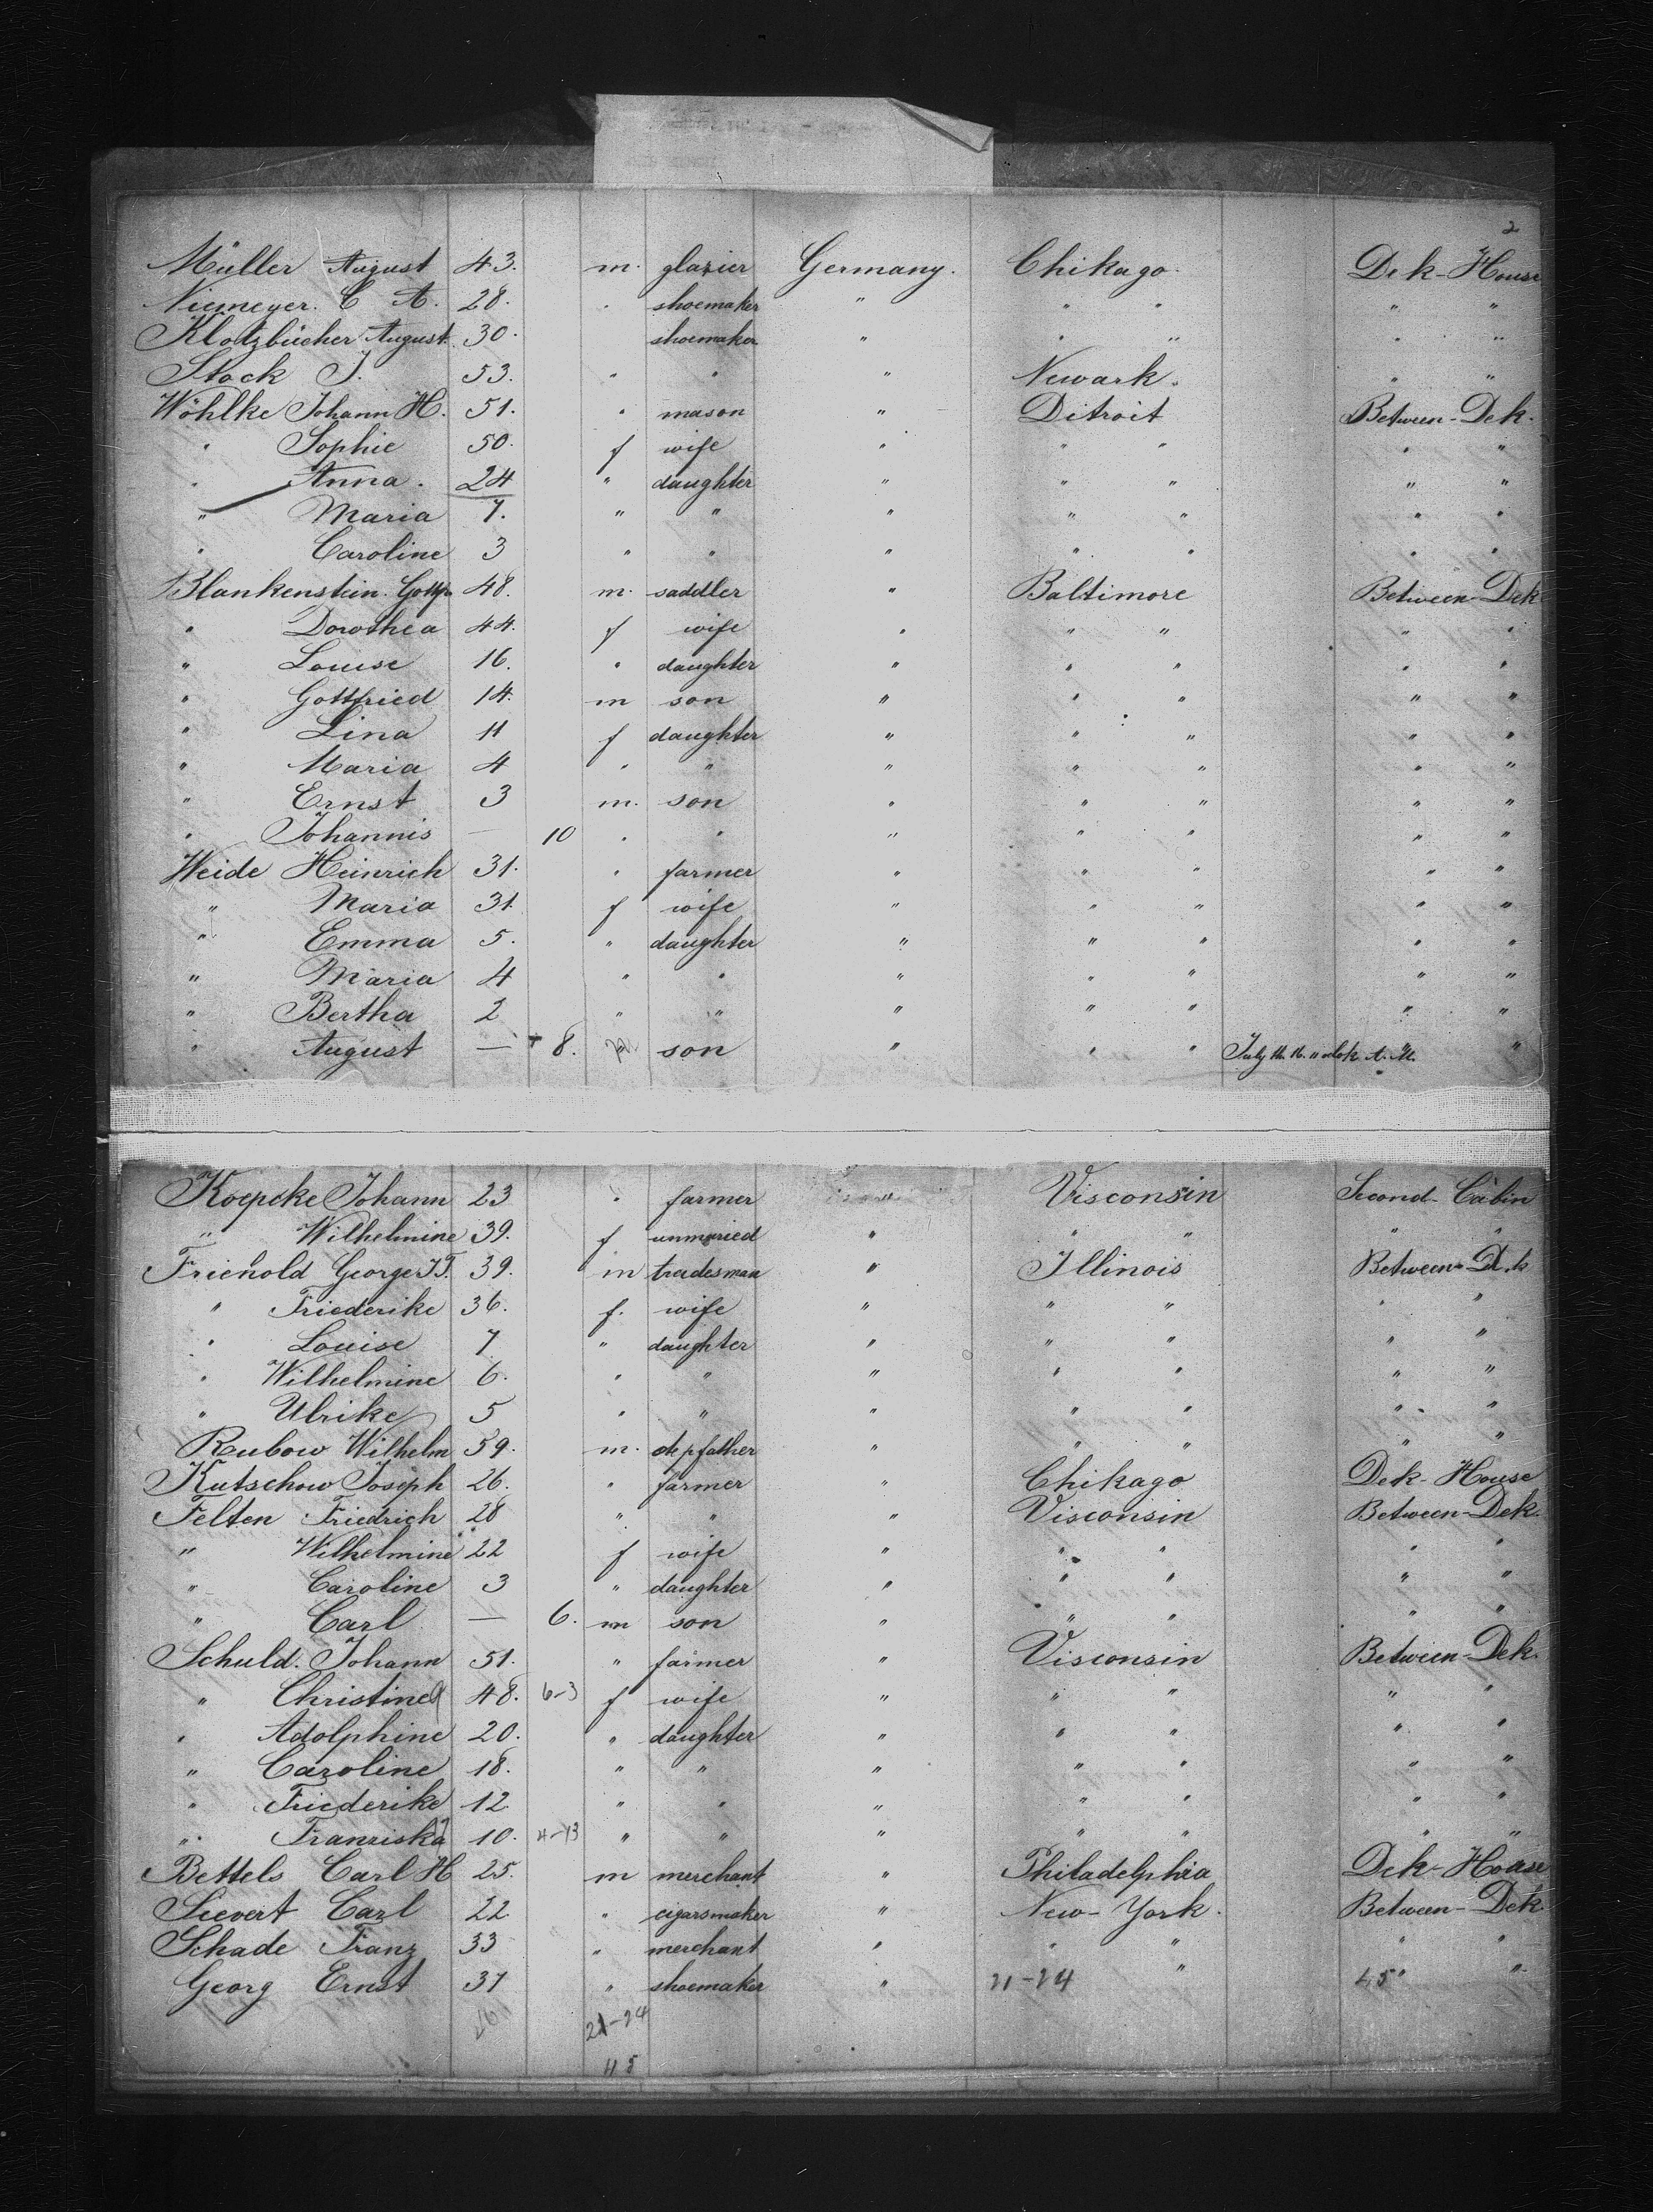 2
Müller August 43. m. glazier Germany. Chikago. Dek-House
Niemeyer. C A. 28. " shoemaker " " " " "
Klotzbücher August. 30. shoemaker " " " " "
Stock J. 53. " " " Newark. " "
Wöhlke Johann H. 51. " mason " Ditroit Between-Dek.
" Sophie 50. f wife " " " " "
" Anna. 24 " daughter " " " " "
" Maria 7. " " " " " " "
" Caroline 3 " " " " " " "
Blankenstein. 48. m. saddler " Baltimore Between-Dek
" Dorothea 44. f wife " " " " "
" Louise 16. " daughter " " " " "
" Gottfried 14. m son " " " " "
" Lina 11 f daughter " " " " "
" Maria 4 " " " " " " "
" Ernst 3 m. son " " " " "
" Johannis — 10 " " " " " " "
Weide Heinrich 31. " farmer " " " " "
" Maria 31. f wife " " " " "
" Emma 5. " daughter " " " " "
" Maria 4 " " " " " " "
" Bertha 2 " " " " " " "
" August — + 8. son " " " July 16. A.M. "
Koepcke Johann 23 " farmer Visconsin Second-Cabin
" Wilhelmine 39. f unmaried " " " " "
Frienold George 39. m tradesman " Illinois Between-Dek
" Friederike 36. f. wife " " " " "
" Louise 7 " daughter " " " " "
" Wilhelmine 6. " " " " " " "
" Ulrike 5 " " " " " " "
Rubow Wilhelm 59. m. stepfather " " " " "
Kutschow Joseph 26. " farmer " Chikago Dek-House
Felten Friedrich 28 " " " Visconsin Between-Dek.
" Wilhelmine 22 f wife " " " " "
" Caroline 3 " daughter " " " " "
" Carl — 6. m son " " " " "
Schuld. Johann 51. " farmer " Visconsin Between-Dek.
" Christine 48. 6-3 f wife " " " " "
" Adolphine 20. " daughter " " " " "
" Caroline 18. " " " " " " "
" Friederike 12 " " " " " " "
" Franziska 10. 4-13 " " " " " " "
Bettels Carl H 25. m merchant " Philadelphia Dek-House
Sievert Carl 22. " cigarsmaker " New-York. Between-Dek.
Schade Franz 33 " merchant " " " " "
Georg Ernst 37 " shoemaker " 21-24 " 45 " "
21-24
45